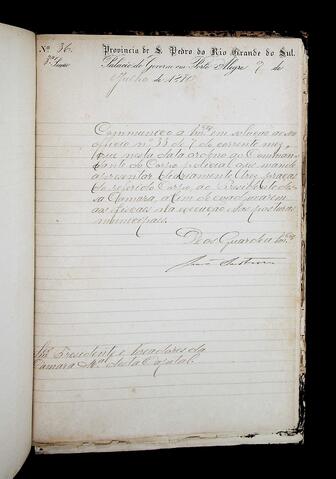 Nº 36.
Provincia de S. Pedro do Rio Grande do Sul.
3ª Secção
Palacio do Governo em Porto Alegre 9 de
Julho de 1880
Communico a Vmces em solução ao seu
officio nº 33 de 7 do corrente mez
que nesta data ordeno ao Comman
dante do Corpo policial que mande
apresentar diariamente tres praças
do referido Corpo ao Presidente des
sa Camara, a fim de coadjuvarem
aos fiscaes na execução das posturas
municipaes.
Deos Guarde a Vmces
Snrs. Presidente e Vereadores da
Camara Mal desta Capital.